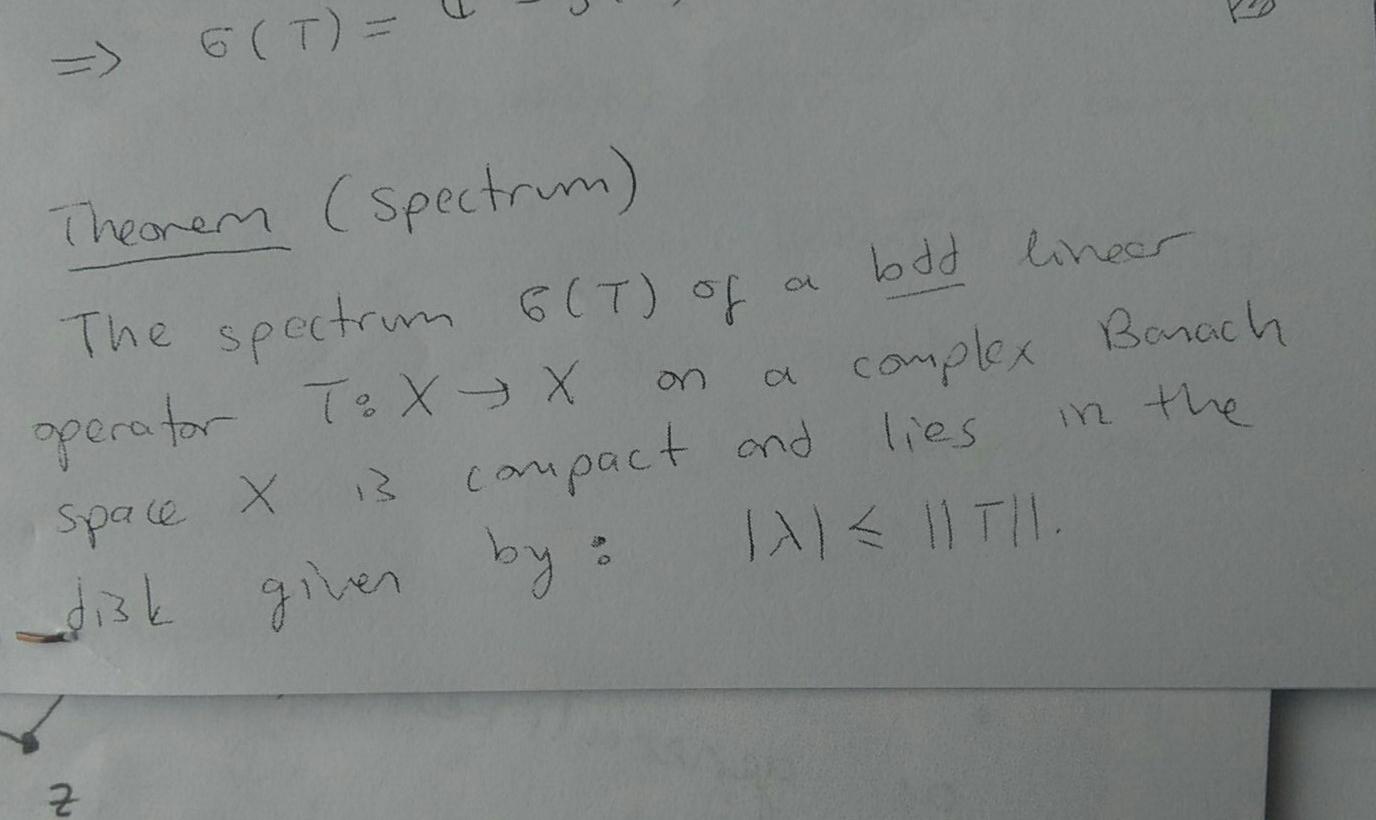 => σ(T) =
Theorem (spectrum)
The spectrum σ(T) of a bdd linear
operator T: X → X on a complex Banach
space X is compact and lies in the
disk given by: |λ| ≤ ||T||.
z